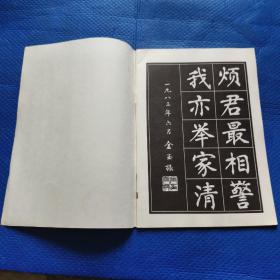 烦君最相警
我亦举家清
一九八三年六月 金玉振